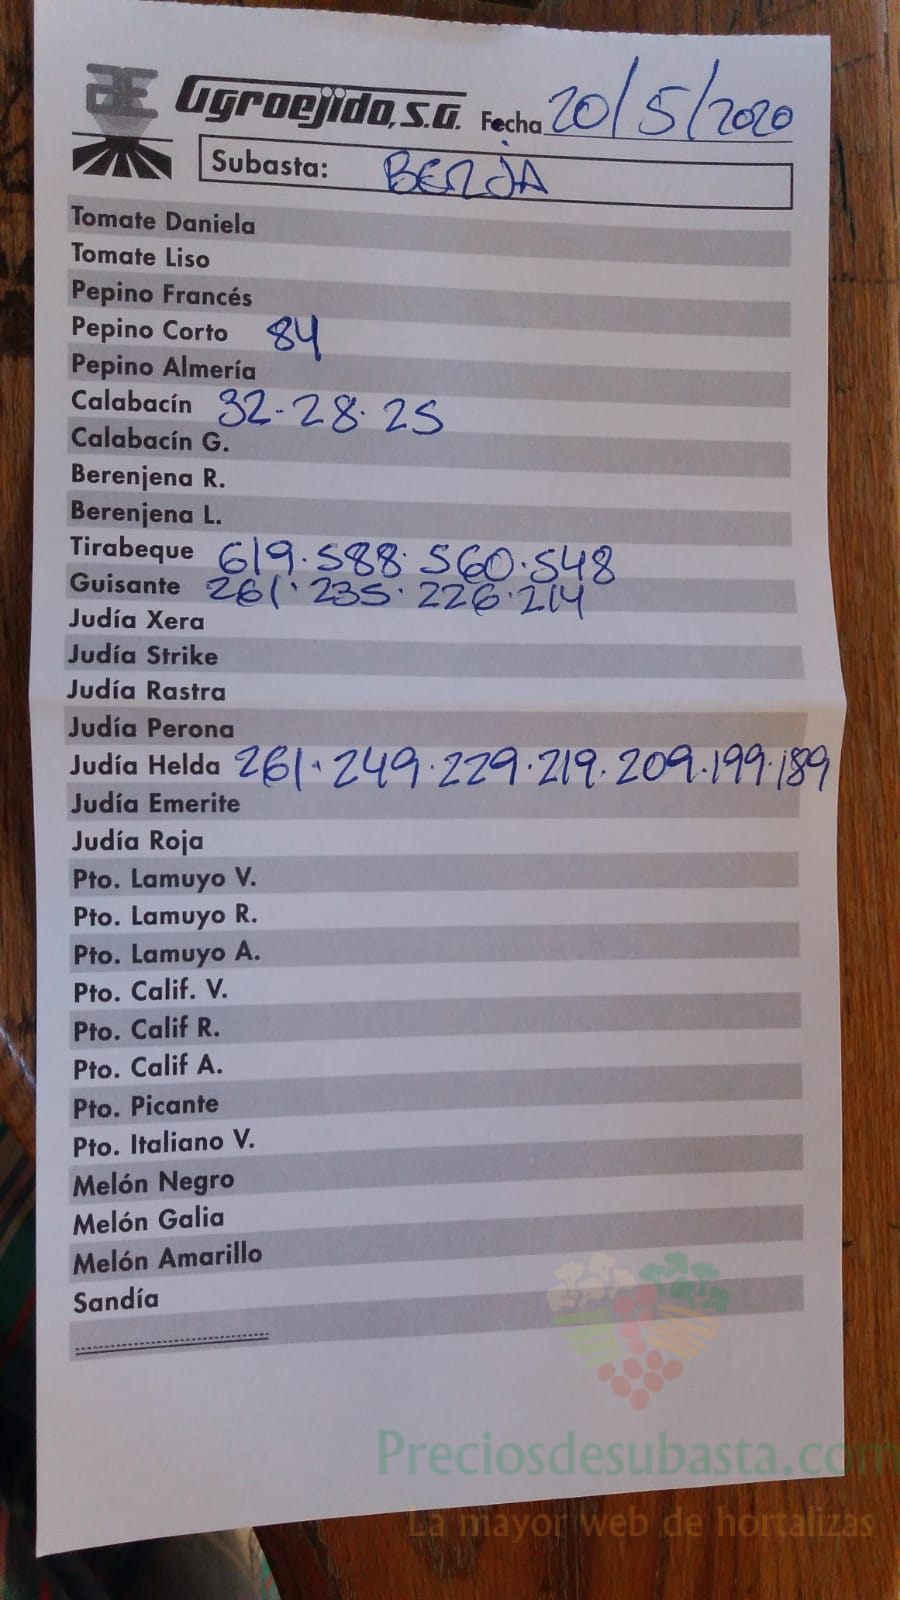 Agroejido, S.A. Fecha 20/5/2020
Subasta: BERJA
Tomate Daniela
Tomate Liso
Pepino Francés
Pepino Corto 84
Pepino Almería
Calabacín 32.28.25
Calabacín G.
Berenjena R.
Berenjena L.
Tirabeque 619.588.560.548
Guisante 261.235.226.214
Judía Xera
Judía Strike
Judía Rastra
Judía Perona
Judía Helda 261.249.229.219.209.199.189
Judía Emerite
Judía Roja
Pto. Lamuyo V.
Pto. Lamuyo R.
Pto. Lamuyo A.
Pto. Calif. V.
Pto. Calif R.
Pto. Calif A.
Pto. Picante
Pto. Italiano V.
Melón Negro
Melón Galia
Melón Amarillo
Sandía
Preciosdesubasta.com
La mayor web de hortalizas